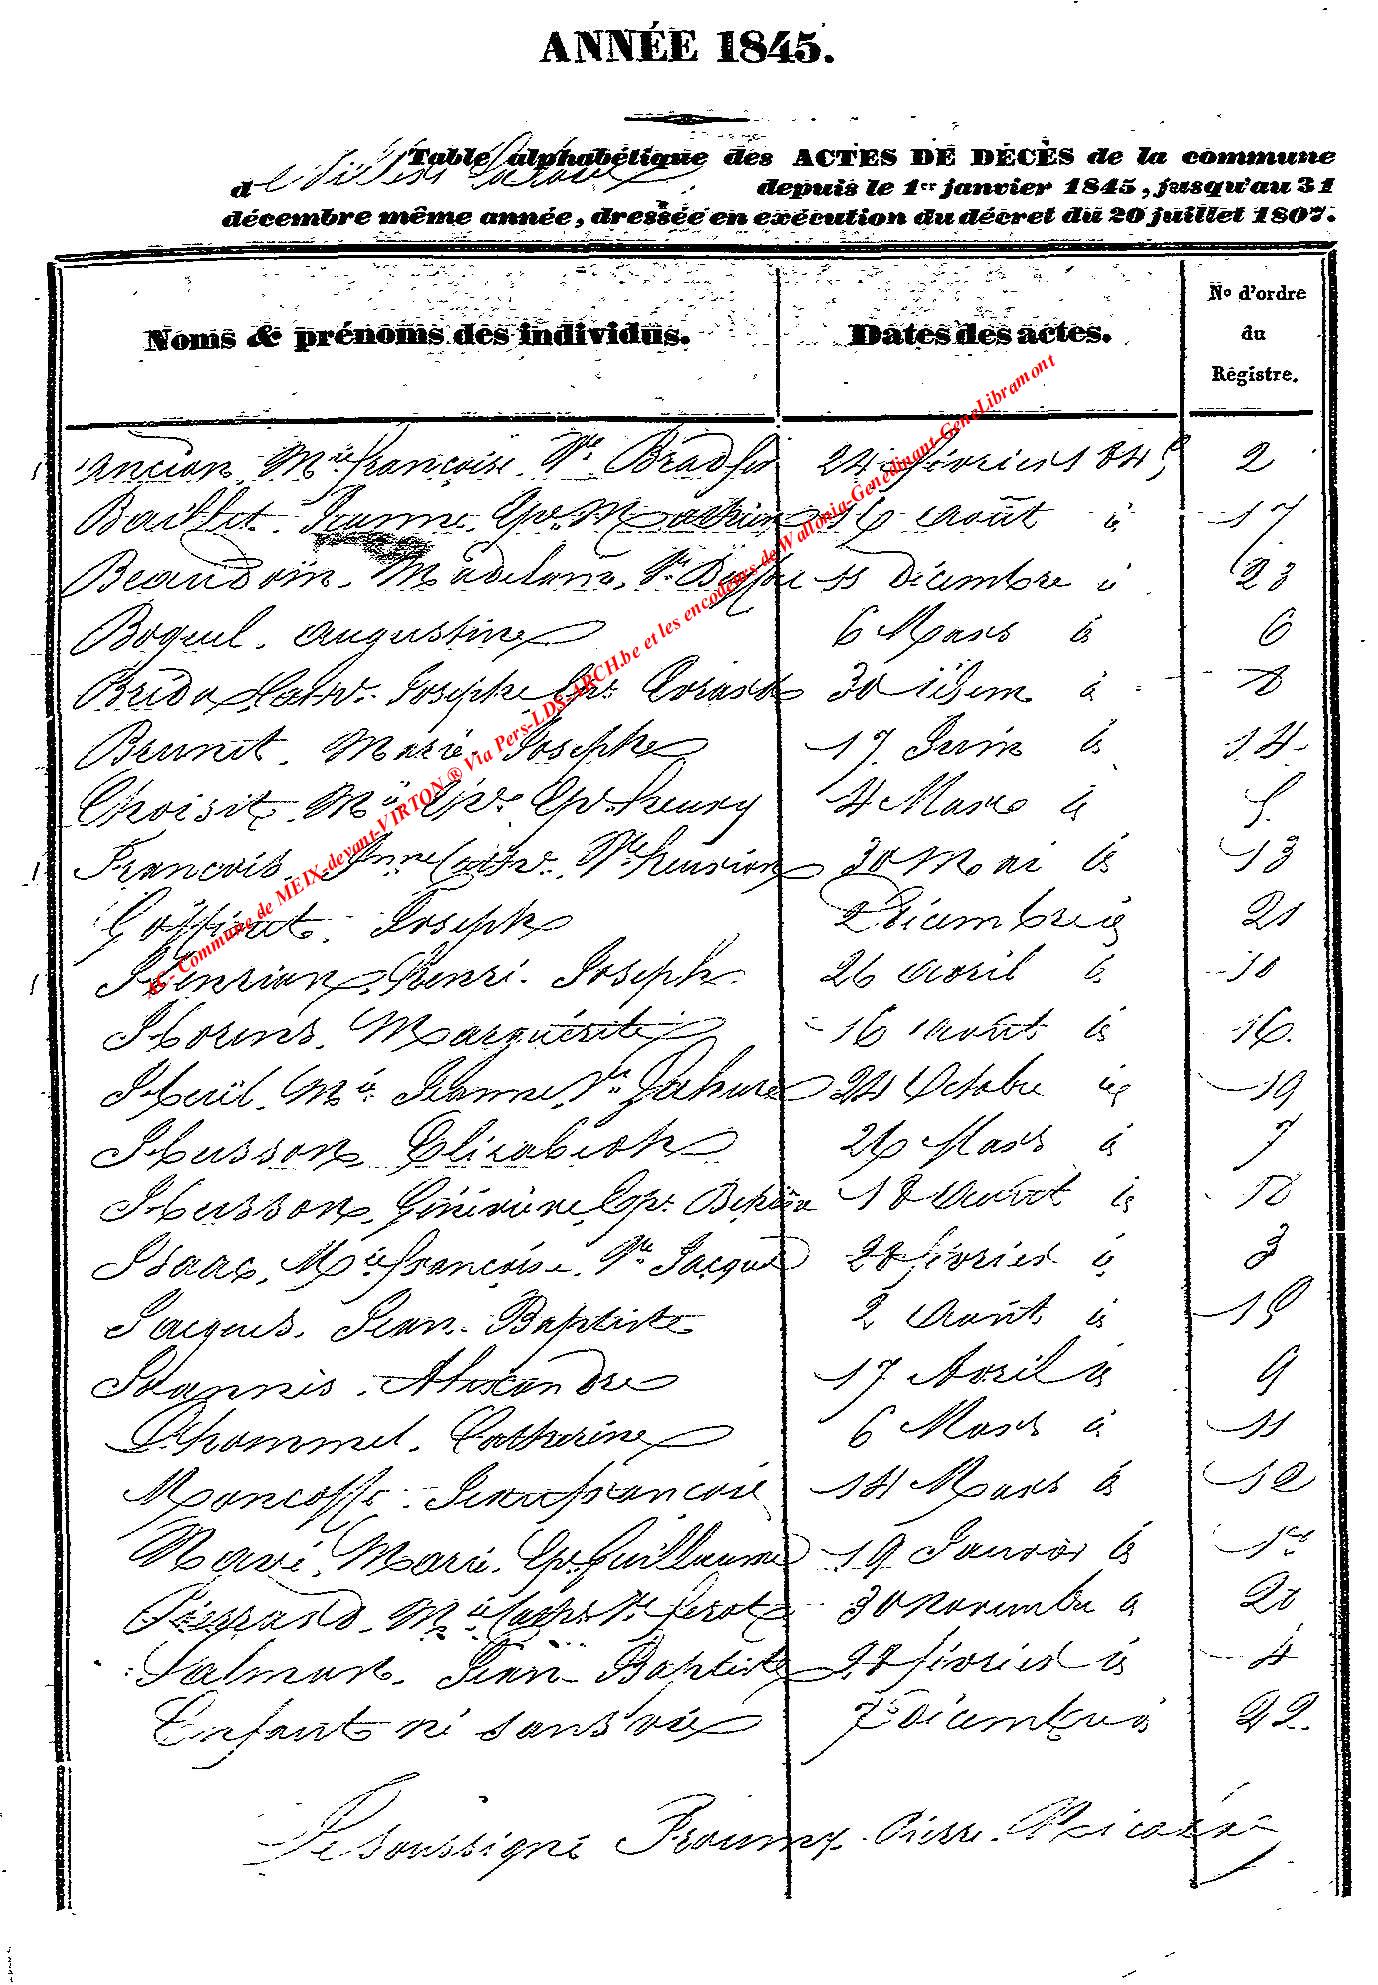 ANNÉE 1845.
Table alphabétique des ACTES DE DÉCÈS de la commune
de depuis le 1er janvier 1845, jusqu'au 31
décembre même année, dressée en exécution du décret du 20 juillet 1807.
Noms & prénoms des individus. Dates des actes. No d'ordre du Régistre.
Ancion, Mie françoise Ve 24 février 1845 2
Baillet. Jeanne, Ep. Mathieu 16 août id 17
Beaudoin. Madelaine. Ve 11 Décembre id 23
Boquel. augustine 6 Mars id 6
Brida Cath. Josephe Ep. 30 idem id 8
Brunet. Marie. Josephe 17 Juin id 14
Choisit, Mie Ep. henry 4 Mars id 5.
François. Anne Cath. Ve henrion 30 Mai id 13
Goffinet. Joseph 2 Décembre id 21
Henrion, Henri. Joseph. 26 avril id 10
Horins. Marguérite 16 août id 16.
Mie Jeanne, Ve 24 Octobre id 19
Husson Elizabeth 26 Mars id 7
Husson, Généviève, Ep. 18 août id 18
Isaac, Mie françoise. Ve Jacques 28 février id 3
Jacques. Jean. Baptiste 2 août id 15
Joannès. Alexandre 17 Avril id 9
Lhommel. Catherine 6 Mars id 11
Jean françois 14 Mars id 12
Navé. Marie. Ep. Guillaume 19 Janvier id 1er
Pierrard. Mie Cath. Ve 30 novembre id 20
Salmon. Jean Baptiste 28 février id 4
Enfant né sans vie 7 Décembre id 22.
Le soussigné Pierre.
AG- Commune de MEIX-devant-VIRTON ® Via Pers-LDS-ARCH.be et les encodeurs de Wallonia-Genedinant-GeneLibramont